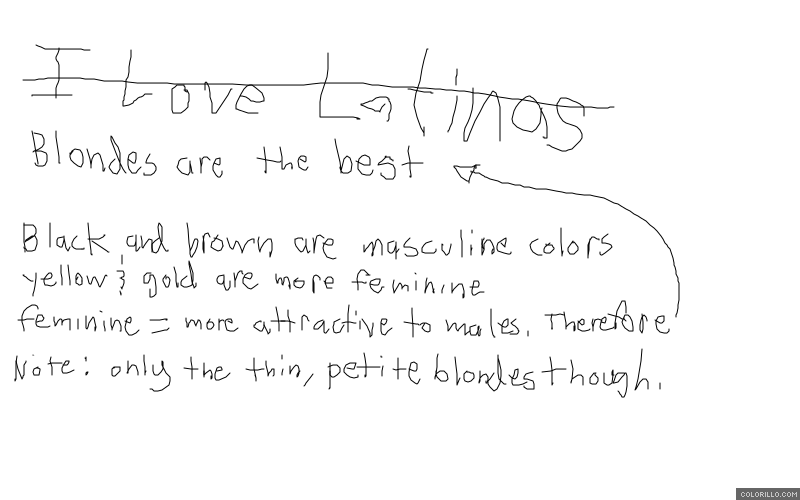 I Love Latinas
Blondes are the best
Black and brown are masculine colors
yellow & gold are more feminine
feminine = more attractive to males. Therefore
Note: only the thin, petite blondes though.
COLORILLO.COM